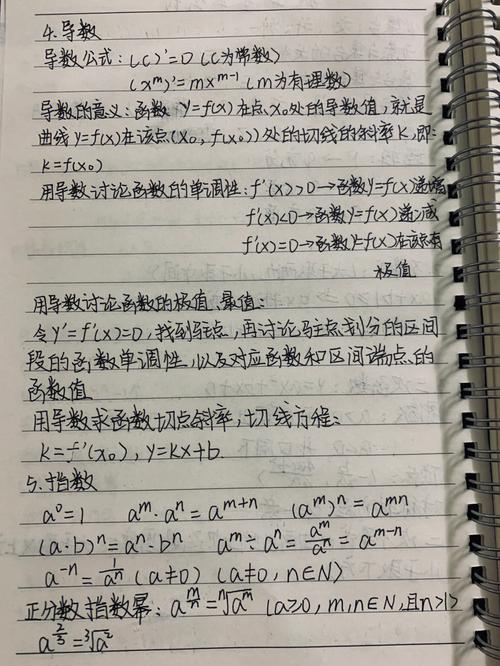 4.导数
导数公式:(C)'=0 (C为常数)
(x^m)'=mx^{m-1} (m为有理数)
导数的意义:函数 y=f(x)在点x₀处的导数值,就是
曲线y=f(x)在该点(x₀, f(x₀))处的切线的斜率k,即:
k=f(x₀)
用导数讨论函数的单调性:f'(x)>0→函数y=f(x)递增
f'(x)<0→函数y=f(x)递减
f'(x)=0→函数y=f(x)在该点有
极值
用导数讨论函数的极值、最值:
令y'=f'(x)=0,找到驻点,再讨论驻点划分的区间
段的函数单调性,以及对应函数和区间端点的
函数值
用导数求函数切点斜率,切线方程:
k=f'(x₀), y=kx+b
5.指数
a^0=1 a^m·a^n=a^{m+n} (a^m)^n=a^{mn}
(a·b)^n=a^n·b^n a^m÷a^n=\frac{a^m}{a^n}=a^{m-n}
a^{-n}=\frac{1}{a^n} (a≠0) (a≠0, n∈N)
正分数指数幂:a^{\frac{m}{n}}=\sqrt[n]{a^m} (a≥0, m,n∈N,且n>1)
a^{\frac{2}{3}}=\sqrt[3]{a^2}